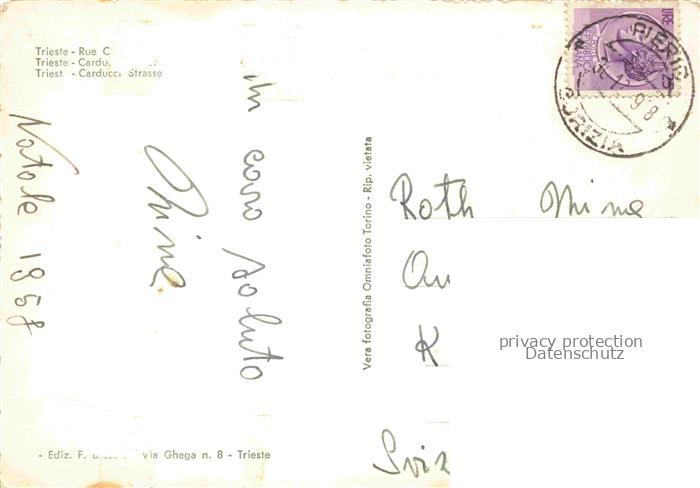 Trieste - Rue C
Trieste - Cardu
Triest - Carducci Strasse
Un caro saluto
Mina
Natale 1958
Vera fotografia Omniafoto Torino - Rip. vietata
- Ediz. F. Via Ghega n. 8 - Trieste
LIRE
PIERIS
GORIZIA
Roth Mina
K
Sviz
privacy protection
Datenschutz